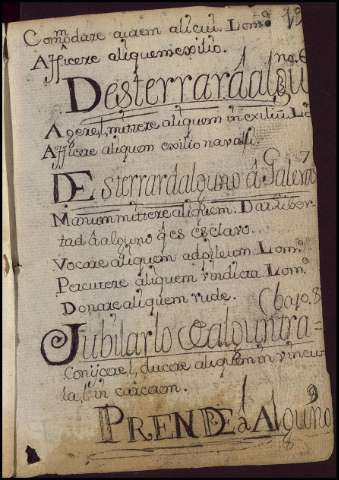 Commodare aurem alicui. Lomo 15
Afficere aliquem exilio.
Desterrar â algu
Agere l, mittere aliquem in exiliũ. Lo
Afficere aliquem exilio navali.
Desterrar â alguno â Galeras
Manum mittere aliquem. Dar liber
tad â alguno q̃ es esclavo.
Vocare aliquem ad pileum. Lomo
Percutere aliquem vindicta Lomo
Donare aliquem rude.
Jubilarlo
Conijcere l, ducere aliquem in vincu
la, l in carcerem.
PRENDE â Alguno